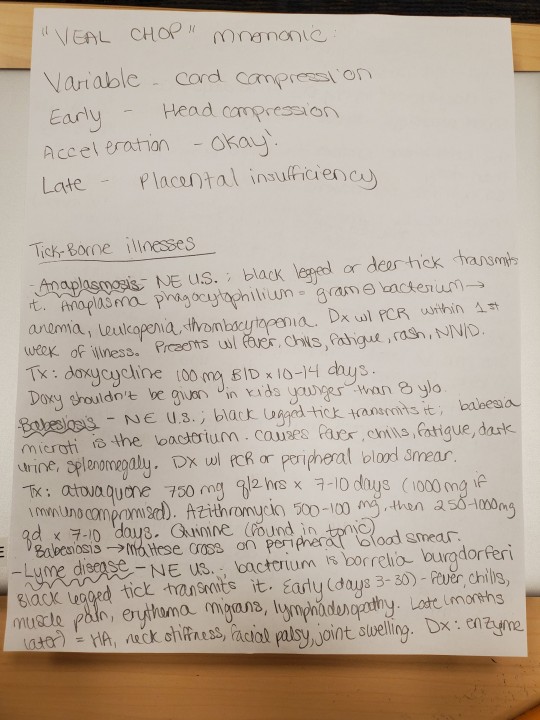 "VEAL CHOP" mnemonic:
Variable - Cord compression
Early - Head compression
Acceleration - okay!
Late - Placental insufficiency
Tick-Borne illnesses
- Anaplasmosis - NE U.S.; black legged or deer tick transmits
it. Anaplasma phagocytophilium = gram ⊖ bacterium →
anemia, leukopenia, thrombocytopenia. Dx w/ PCR within 1st
week of illness. Presents w/ fever, chills, fatigue, rash, N/V/D.
Tx: doxycycline 100 mg BID x 10-14 days.
Doxy shouldn't be given in kids younger than 8 y/o.
Babesiosis - NE U.S.; black legged tick transmits it; babesia
microti is the bacterium. Causes fever, chills, fatigue, dark
urine, splenomegaly. Dx w/ PCR or peripheral blood smear.
Tx: atovaquone 750 mg q12 hrs x 7-10 days (1000 mg if
immunocompromised). Azithromycin 500-100 mg, then 250-1000mg
qd x 7-10 days. Quinine (found in tonic)
Babesiosis → Maltese cross on peripheral blood smear.
- Lyme disease - NE US.; bacterium is borrelia burgdorferi
Black legged tick transmits it. Early (days 3-30) - fever, chills,
muscle pain, erythema migrans, lymphadenopathy. Late (months
later) = HA, neck stiffness, facial palsy, joint swelling. Dx: enzyme